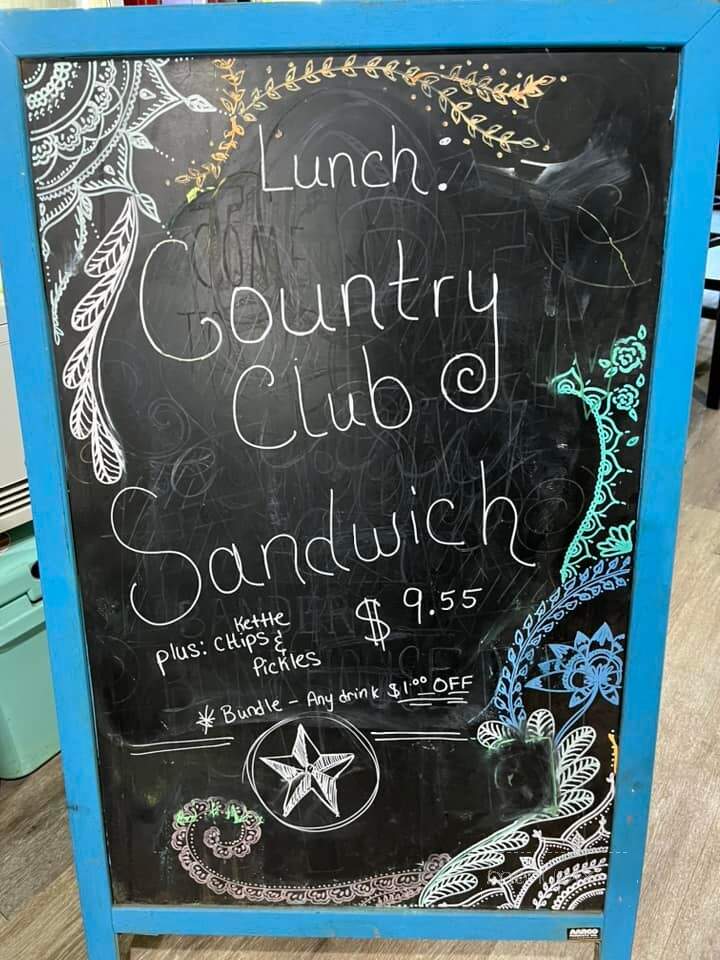 Lunch:
Country
Club
Sandwich
$ 9.55
plus: Kettle
Chips &
Pickles
* Bundle - Any drink $1.00 OFF
AARCO